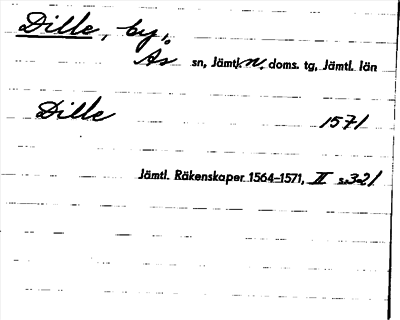 Dille, by,
Ås sn, Jämtl. n. doms. tg, Jämtl. län
Dille 1571
Jämtl. Räkenskaper 1564-1571, II s. 321.